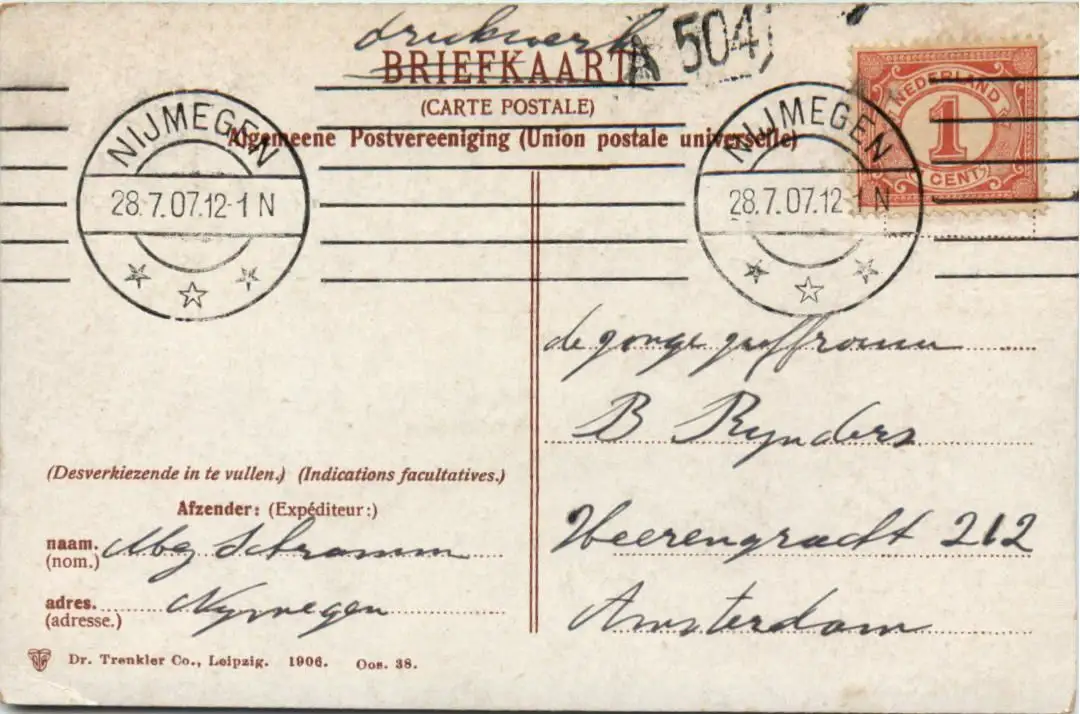 drukwerk
BRIEFKAART
A 504
(CARTE POSTALE)
Algemeene Postvereeniging (Union postale universelle)
NIJMEGEN
28.7.07.12-1 N
NIJMEGEN
28.7.07.12 1 N
NEDERLAND
1
CENT
de jonge juffrouw
B Rynders
Heerengracht 212
Amsterdam
(Desverkiezende in te vullen.) (Indications facultatives.)
Afzender: (Expéditeur:)
naam. Schramm
(nom.)
adres. Nymegen
(adresse.)
Dr. Trenkler Co., Leipzig. 1906. Oos. 38.